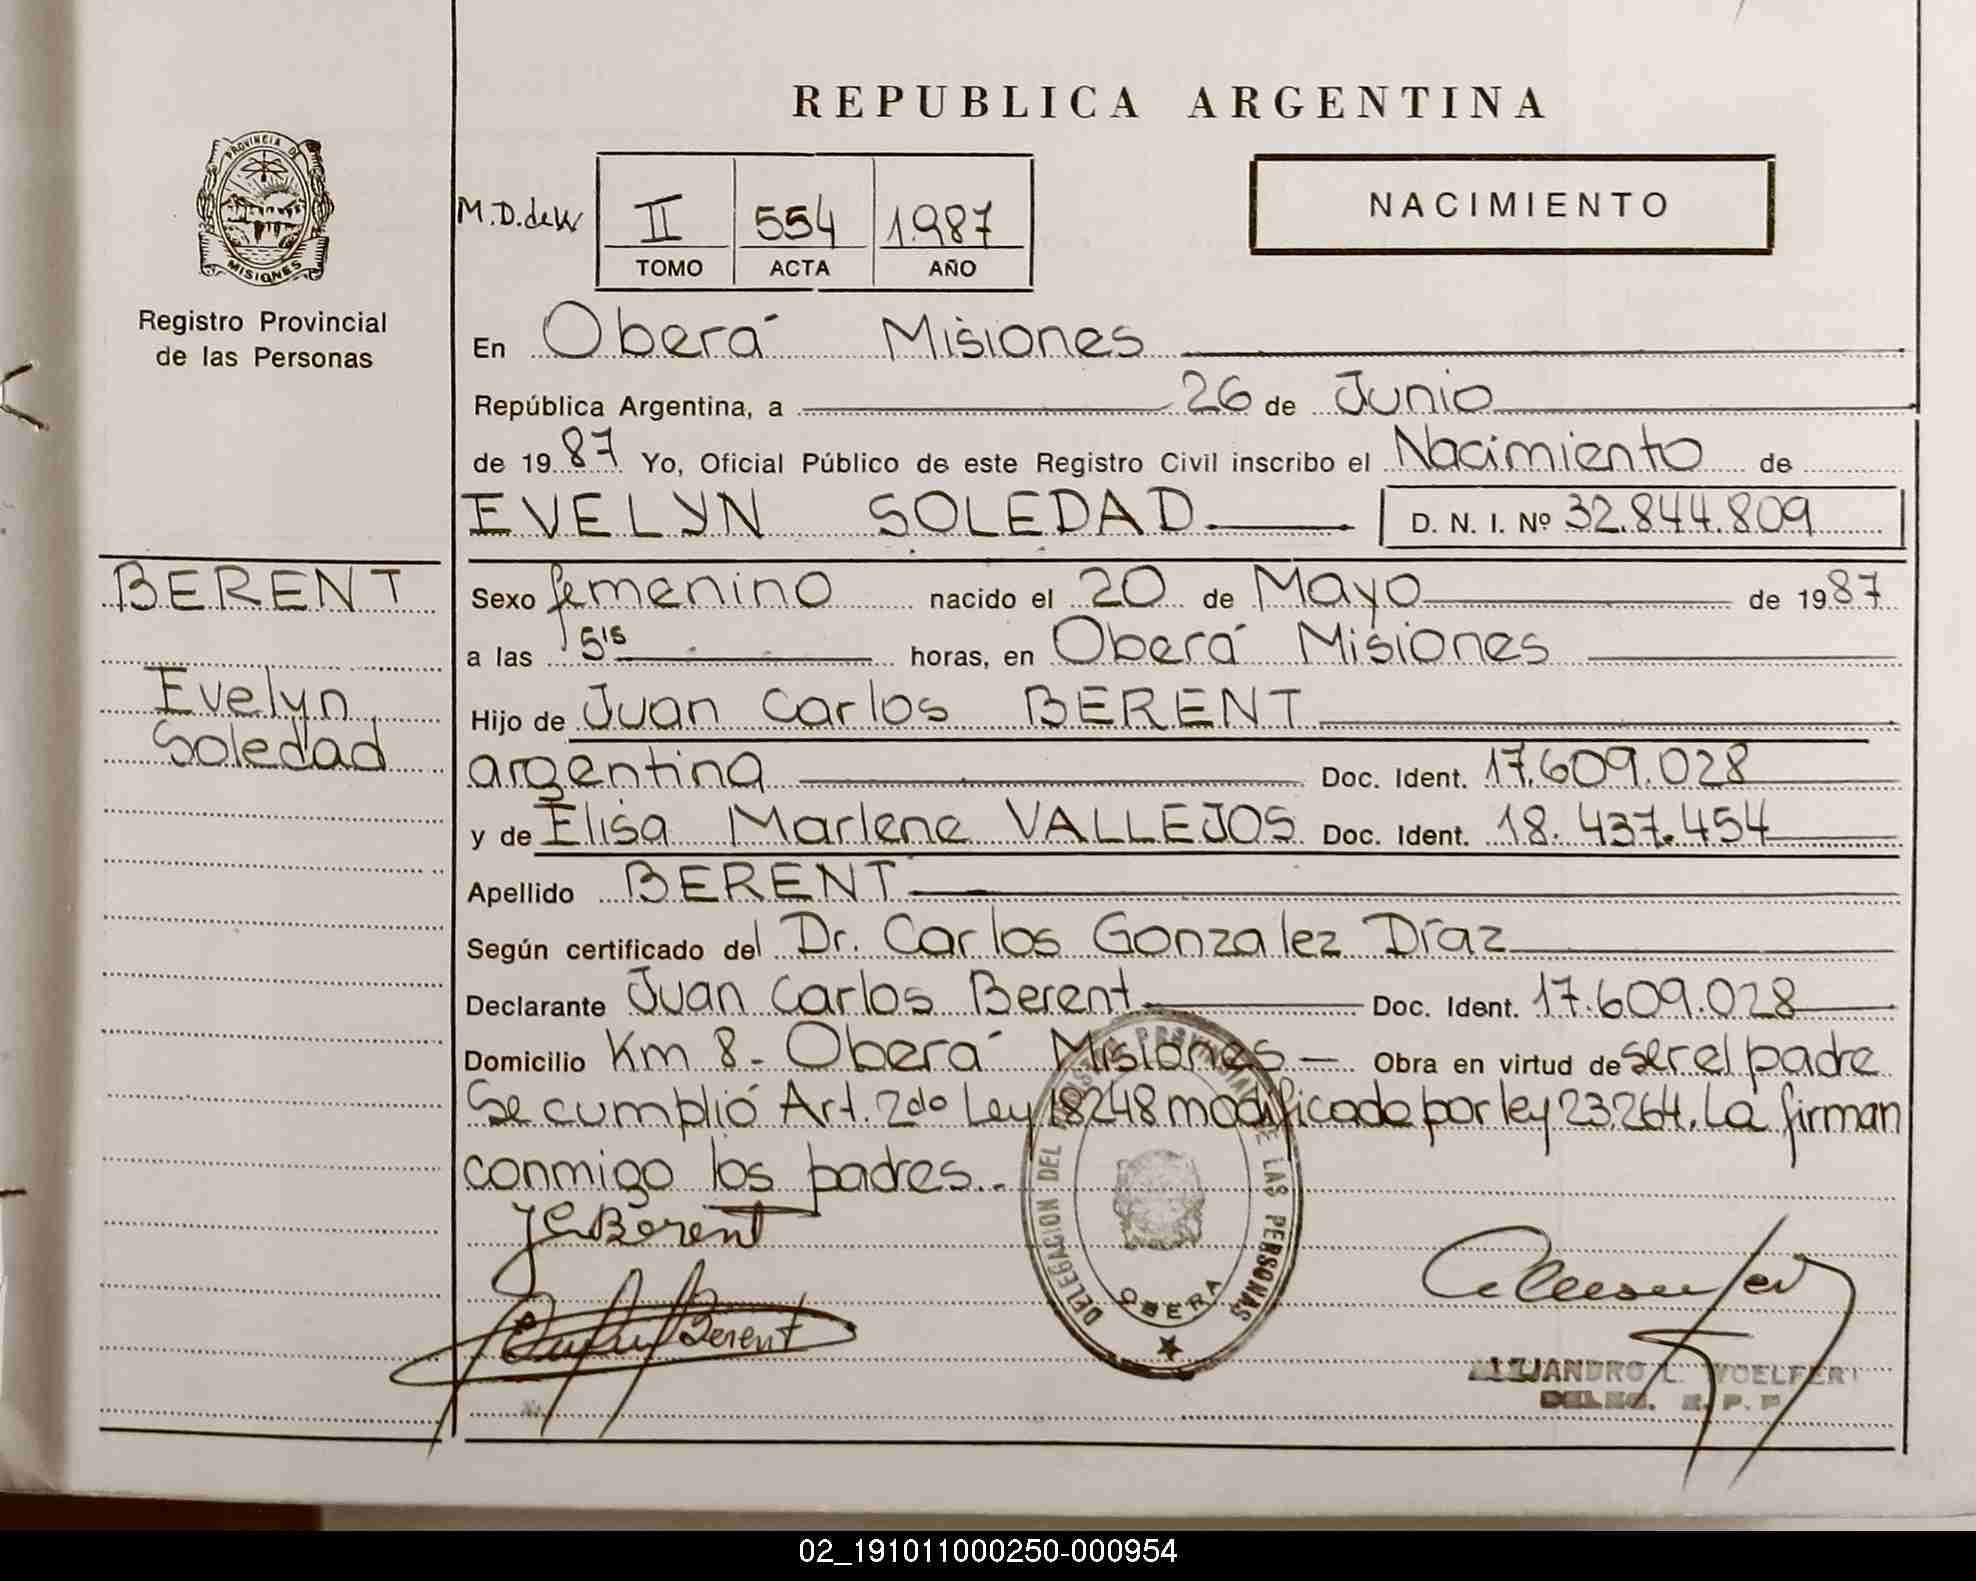 REPUBLICA ARGENTINA
PROVINCIA DE
MISIONES
Registro Provincial
de las Personas
M.D.deW
II 554 1.987
TOMO ACTA AÑO
NACIMIENTO
En Oberá Misiones
República Argentina, a 26 de Junio
de 1987 Yo, Oficial Público de este Registro Civil inscribo el Nacimiento de
EVELYN SOLEDAD D. N. I. Nº 32.844.809
BERENT
Evelyn
Soledad
Sexo femenino nacido el 20 de Mayo de 1987
a las 5'15 horas, en Oberá Misiones
Hijo de Juan Carlos BERENT
argentina Doc. Ident. 17.609.028
y de Elisa Marlene VALLEJOS Doc. Ident. 18.437.454
Apellido BERENT
Según certificado del Dr. Carlos Gonzalez Díaz
Declarante Juan Carlos Berent Doc. Ident. 17.609.028
Domicilio Km 8- Oberá Misiones Obra en virtud de ser el padre
Se cumplió Art. 2do Ley 18248 modificado por ley 23.264. La firman
conmigo los padres..
JCBerent
Berent
DELEGACION DEL REGISTRO PROVINCIAL DE LAS PERSONAS
OBERA
ALEJANDRO L. WOELFERT
DELEG. R. P. P.
02_191011000250-000954